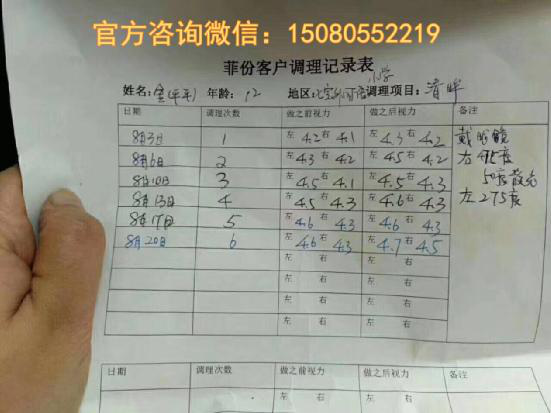 官方咨询微信：15080552219
菲份客户调理记录表
小学
姓名： 年龄：12 地区： 调理项目：清眸
日期 调理次数 做之前视力 做之后视力 备注
8月3日 1 左 4.2 右 4.1 左 4.3 右 4.2 戴眼镜
8月6日 2 左 4.3 右 4.2 左 4.5 右 4.2 右 475度
8月10日 3 左 4.5 右 4.1 左 4.5 右 4.3 50度散光
8月13日 4 左 4.5 右 4.3 左 4.6 右 4.3 左 275度
8月17日 5 左 4.6 右 4.3 左 4.6 右 4.3
8月20日 6 左 4.6 右 4.3 左 4.7 右 4.5
左 右 左 右
左 右 左 右
左 右 左 右
左 右 左 右
日期 调理次数 做之前视力 做之后视力 备注
左 右 左 右